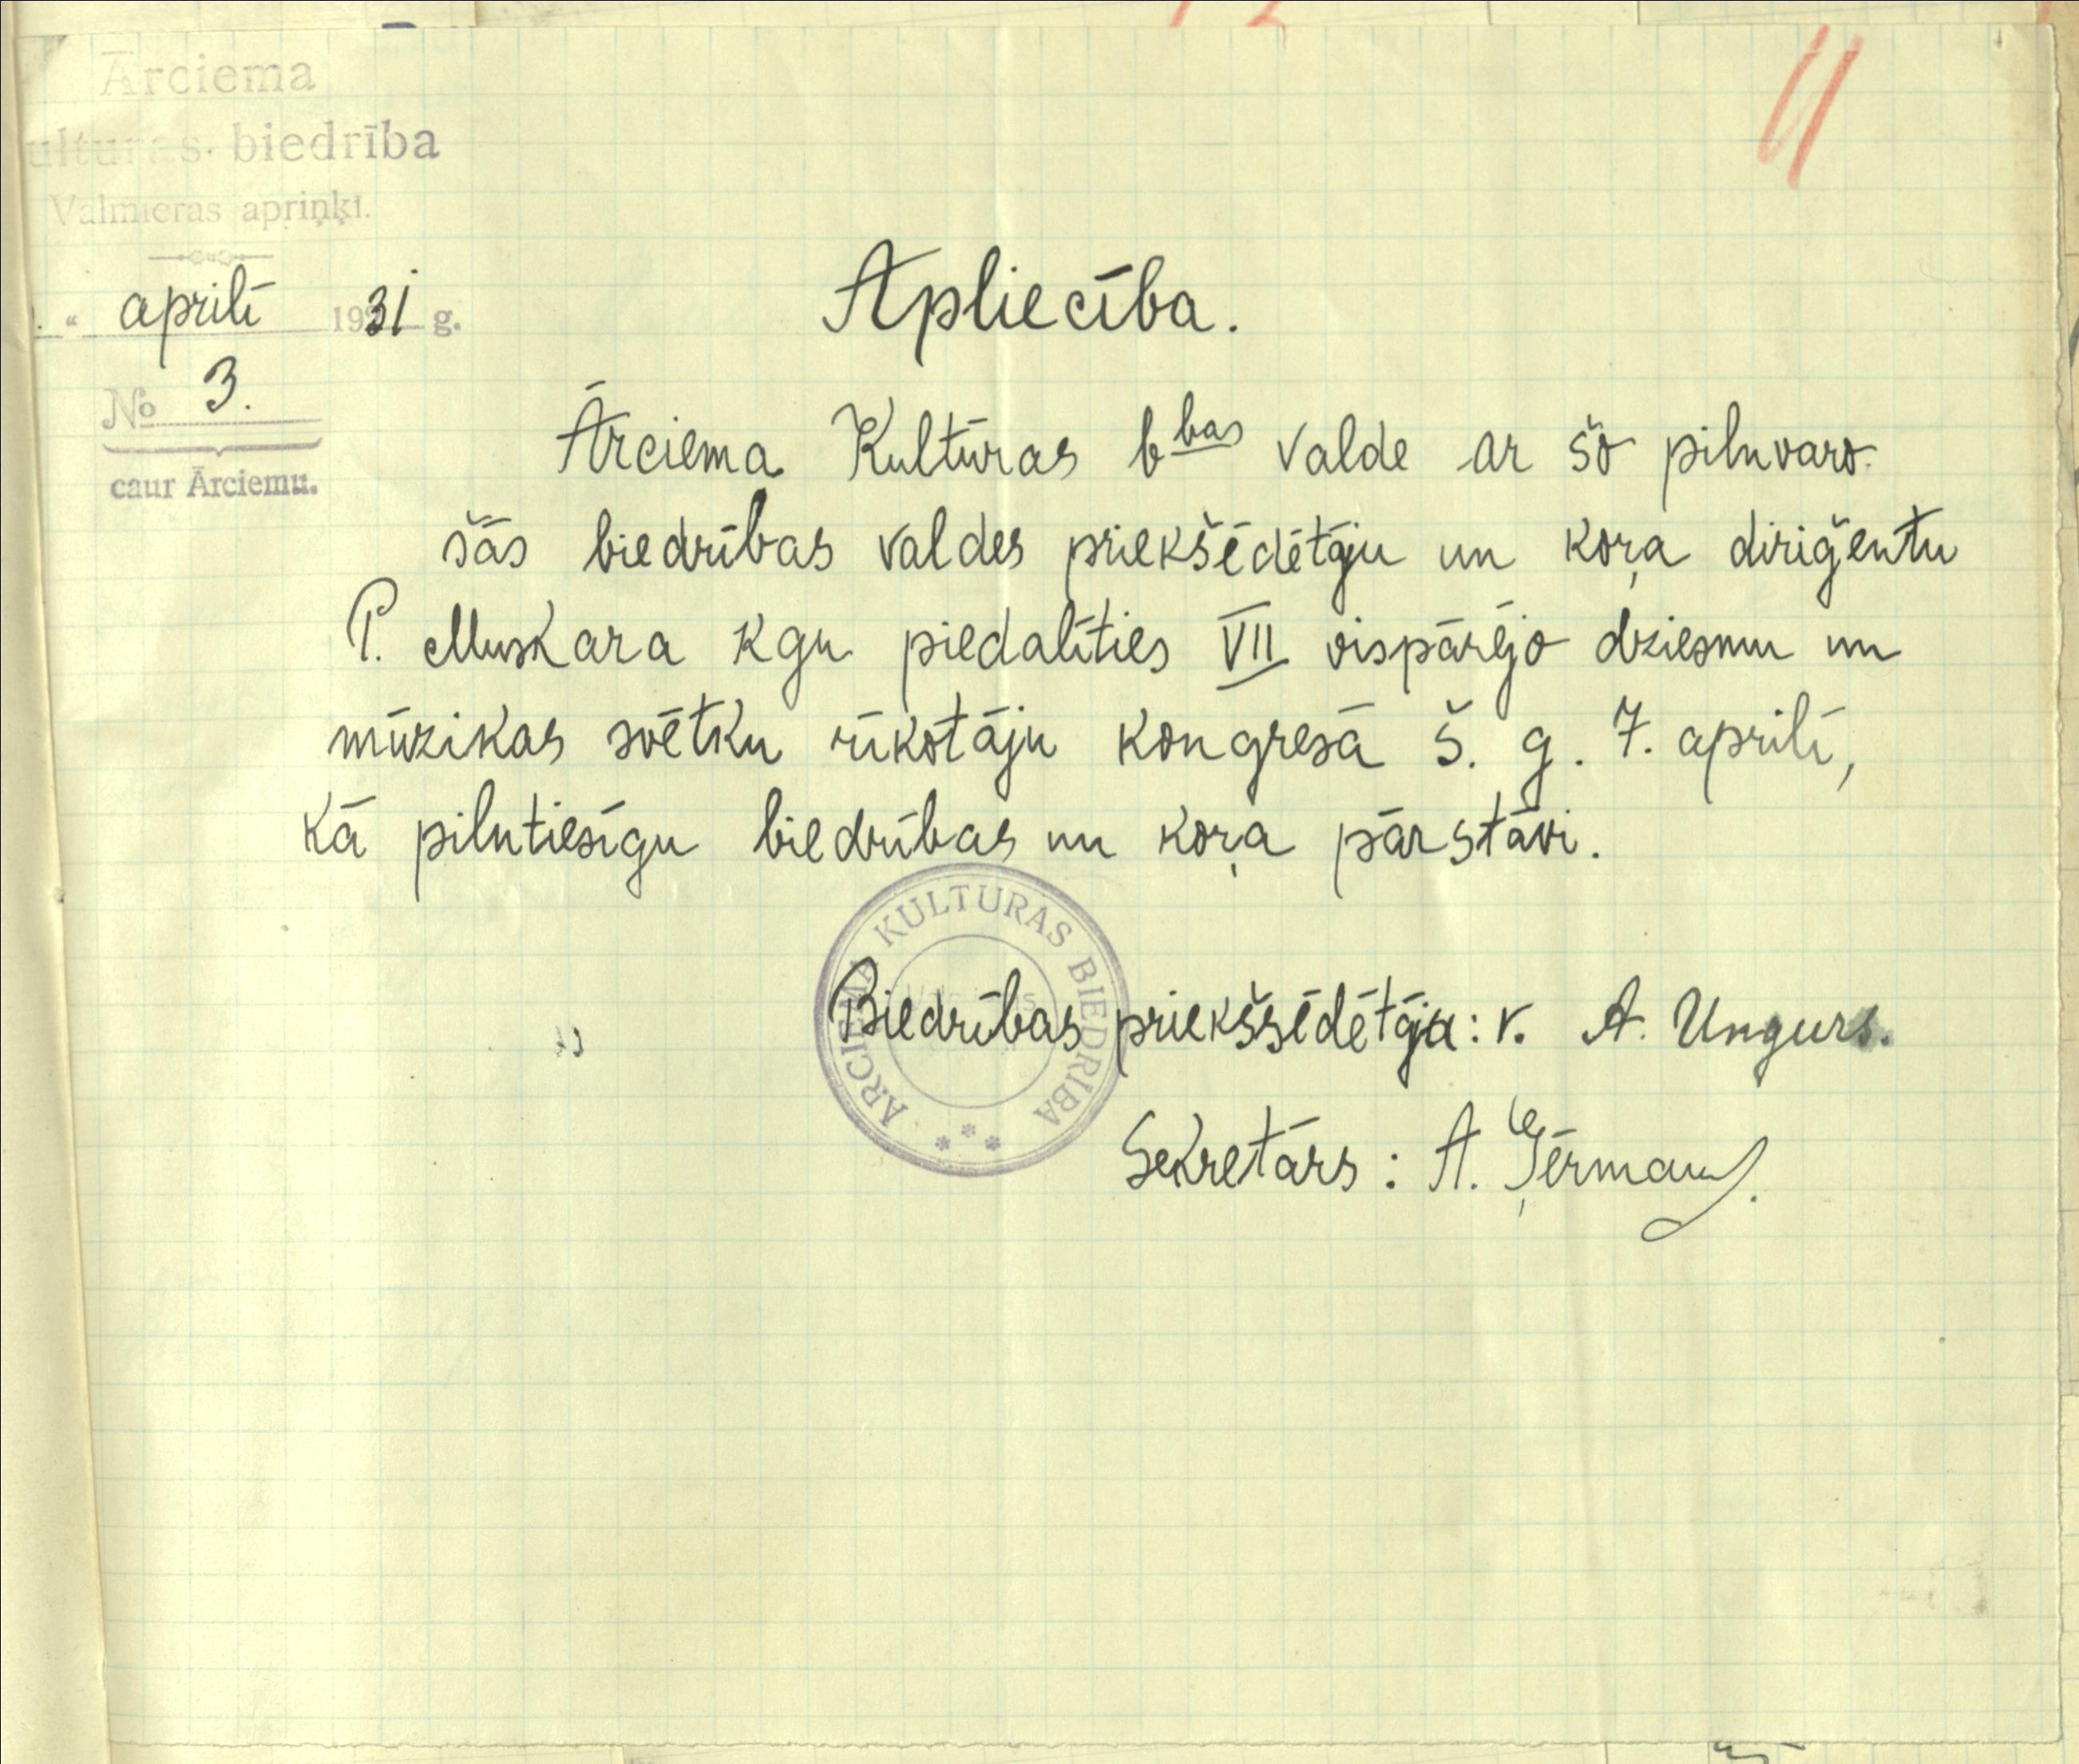 Ārciema
ulturas biedrība
Valmieras apriņķī.
" aprilī 1931 g.
No 3.
caur Ārciemu.
11
Apliecība.
Ārciema Kultūras bbas valde ar šo pilnvaro
šās biedrības valdes priekšēdētāju un koŗa diriģentu
P. Muskara kgu piedalīties VII vispārējo dziesmu un
mūzikas svētku rīkotāju kongresā š. g. 7. aprilī,
kā pilntiesīgu biedrības un koŗa pārstāvi.
ĀRCIEMA KULTURAS BIEDRIBA
Biedrības priekšsēdētāja: v. A. Ungurs.
Sekretārs: A.